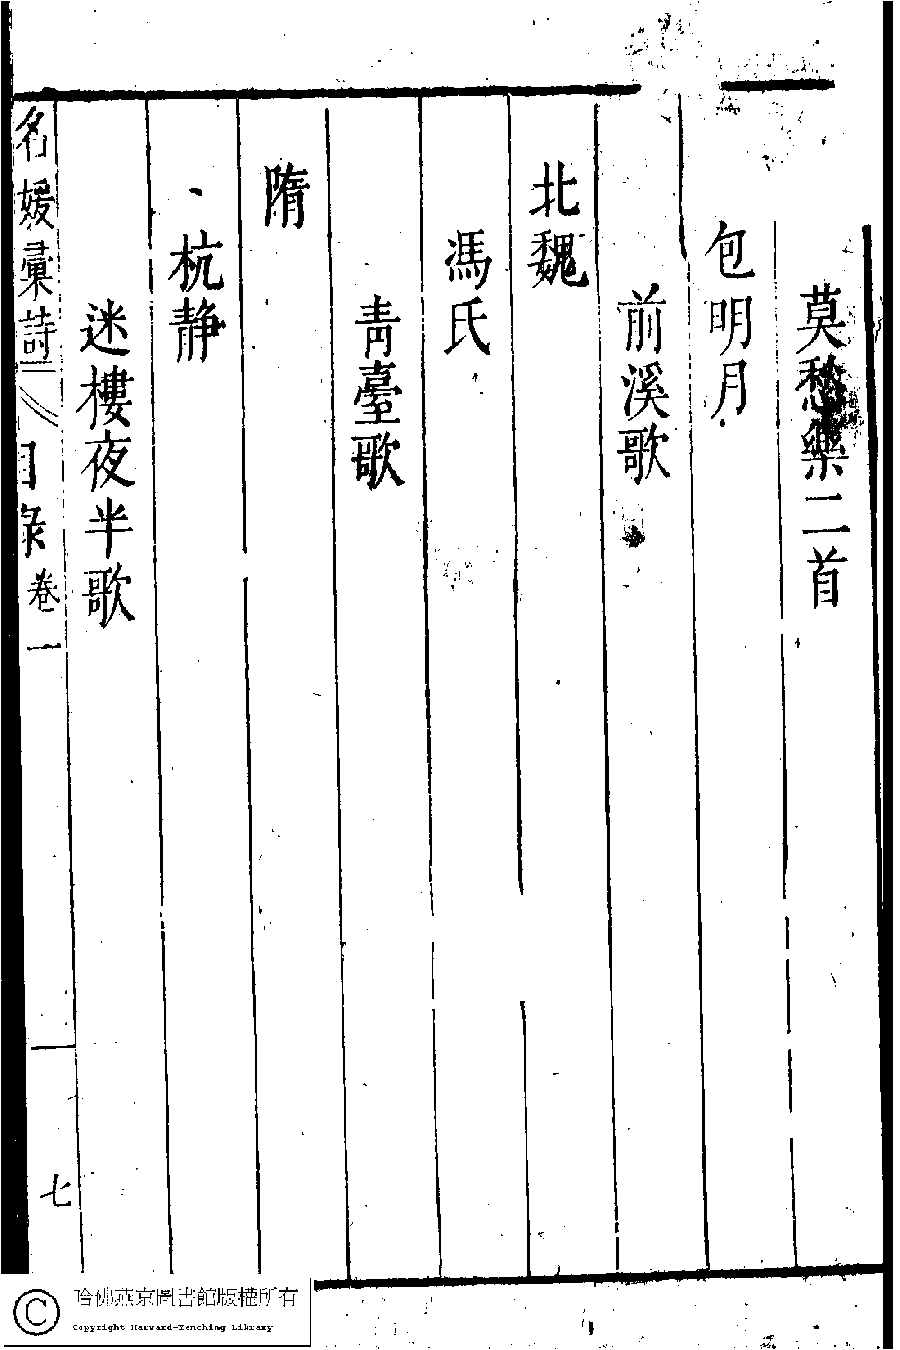 莫愁樂二首
包明月
前溪歌
北魏
馮氏
青臺歌
隋
杭静
迷樓夜半歌
名媛彙詩
目錄 卷一
七
哈佛燕京圖書館版權所有
Copyright Harvard-Yenching Library